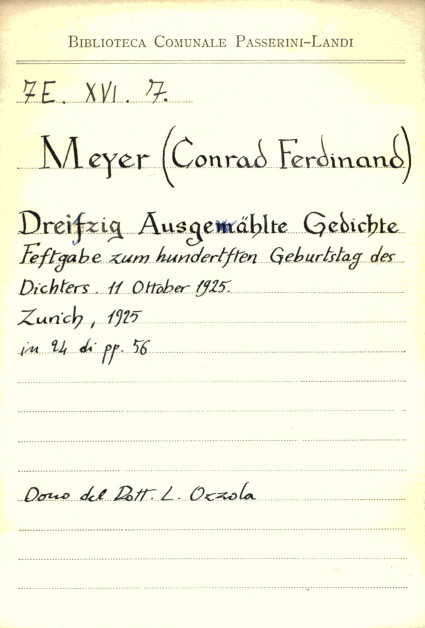 BIBLIOTECA COMUNALE PASSERINI-LANDI
7E. XVI. 7.
Meyer (Conrad Ferdinand)
Dreifzig Ausgewählte Gedichte
Feftgabe zum hundertften Geburtstag des
Dichters. 11 Ottober 1925.
Zurich, 1925
in 24 di pp. 56
Dono del Dott. L. Ozzola